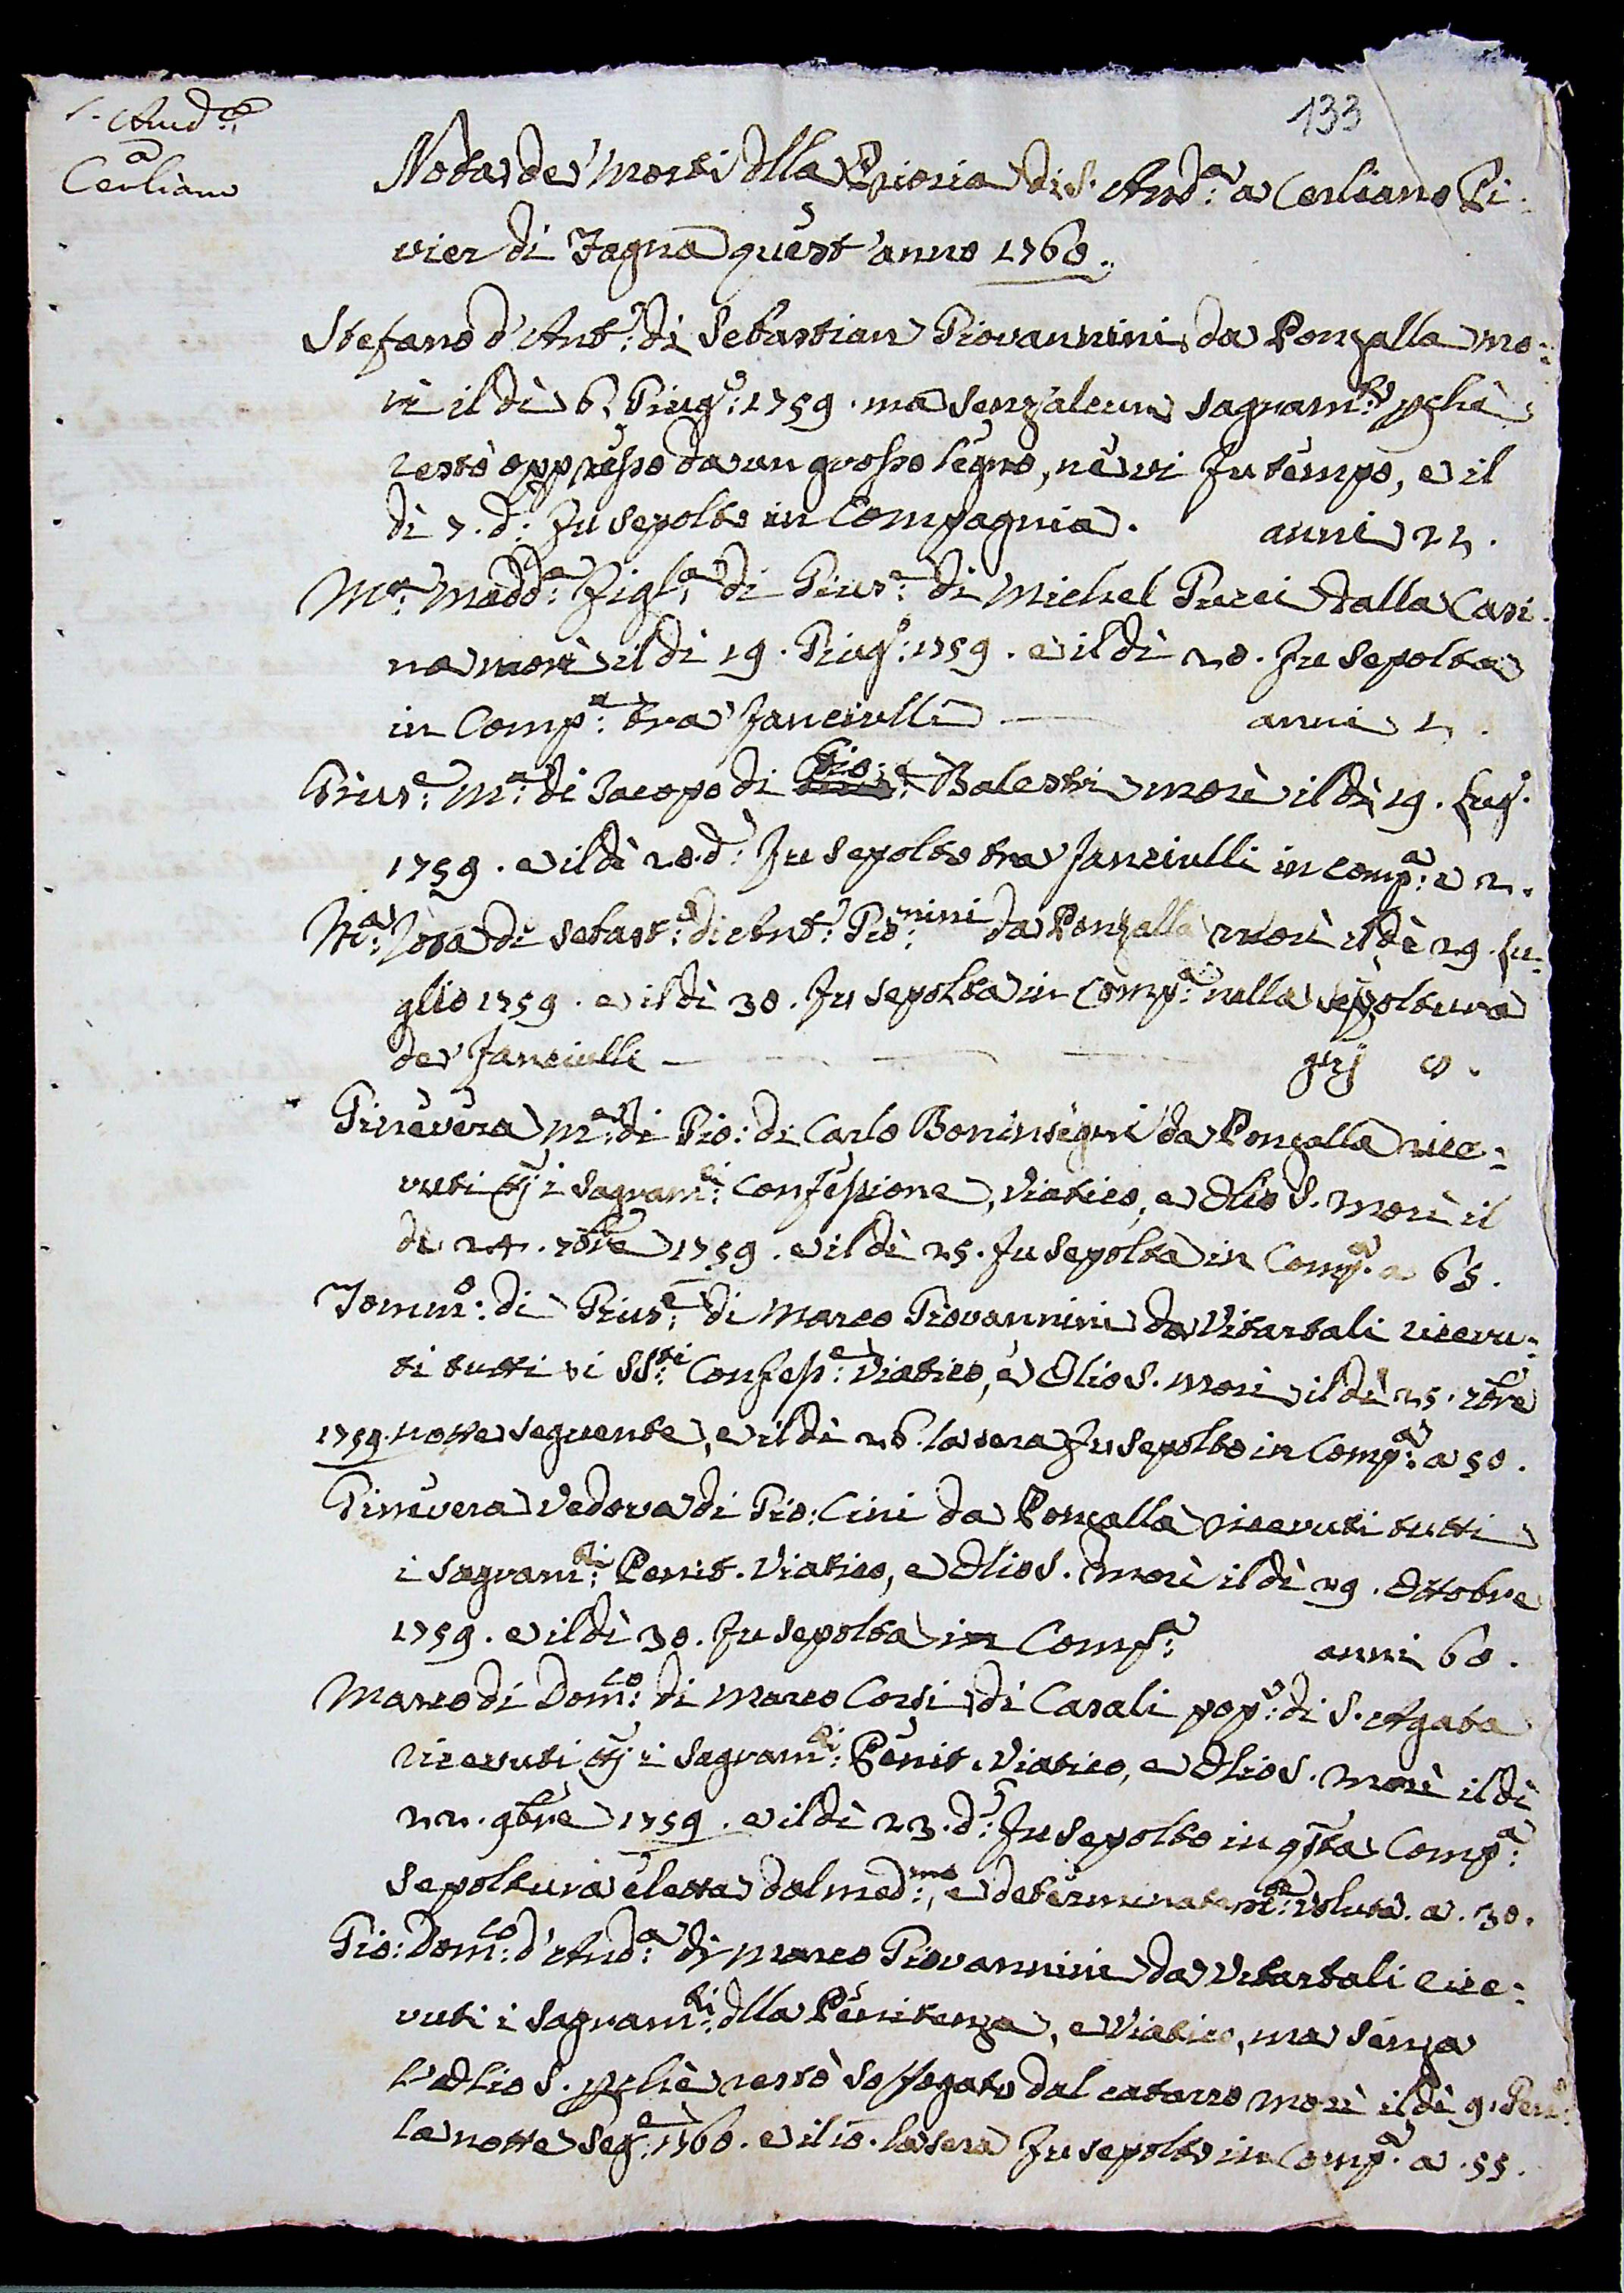 133
S. And.a
a
Cerliano
Nota de' Morti dlla Prioria di S. And.a a Cerliano Pi-
vier di Fagna quest'anno 1760.
Stefano d'Ant.o di Sebastian Giovannini da Ponzalla mo-
rì il dì 6. Giug.o 1759. ma senz'alcun sagram.to pchè
restò oppresso da un grosso legno, nè vi fu tempo, e il
dì 7. d.o fu sepolto in Compagnia. anni 22.
M.a Madd.a figl.a di Gius.e di Michel Pucci dalla Casi-
na morì il dì 19. Giug.o 1759. e il dì 20. fu sepolta
in Comp.a tra' fanciulli anni 2.
Gius.e M.a di Jacopo di Gio: Balestri morì il dì 19. Lug.
1759. e il dì 20. d.o fu sepolto tra' fanciulli in Comp.a a 2.
M.a Rosa di Sebast.o di Ant.o Gio:nini da Ponzalla morì il dì 29. Lu-
glio 1759. e il dì 30. fu sepolta in Comp.a nella sepoltura
de' fanciulli gni 8.
Ginevera M.e di Gio: di Carlo Boninsegni da Ponzalla rice-
vuti tti i sagram.ti Confessione, Viatico, e Olio S. morì il
dì 24. 7bre 1759. e il dì 25. fu sepolta in Comp.a a 65.
Tomm.o di Gius.e di Marco Giovannini da Vitartali ricevu-
ti tutti i SS.ti Confess.e Viatico, e Olio S. morì il dì 25. 7bre
1759. notte seguente, e il dì 26. la sera fu sepolto in Comp.a a 50.
Ginevera Vedova di Gio: Cini da Ponzalla ricevuti tutti
i sagram.ti Penit. Viatico, e Olio S. morì il dì 29. Ottobre
1759. e il dì 30. fu sepolta in Comp.a anni 60.
Marco di Dom.co di Marco Corsi di Casali pop.o di S. Agata
ricevuti tti i sagram.ti Penit. Viatico, e Olio S. morì il dì
22. 9bre 1759. e il dì 23. d.o fu sepolto in qsta Comp.a
sepoltura eletta dal med.mo, e determinatam.te voluta. a. 30.
Gio: Dom.co d'And.a di Marco Giovannini da Vitartali rice-
vuti i sagram.ti dlla Penitenza, e Viatico, ma senza
l'Olio S. pchè restò soffogato dal catarro morì il dì 9. Gen.o
la notte seg.e 1760. e il 10. la sera fu sepolto in Comp.a a. 55.